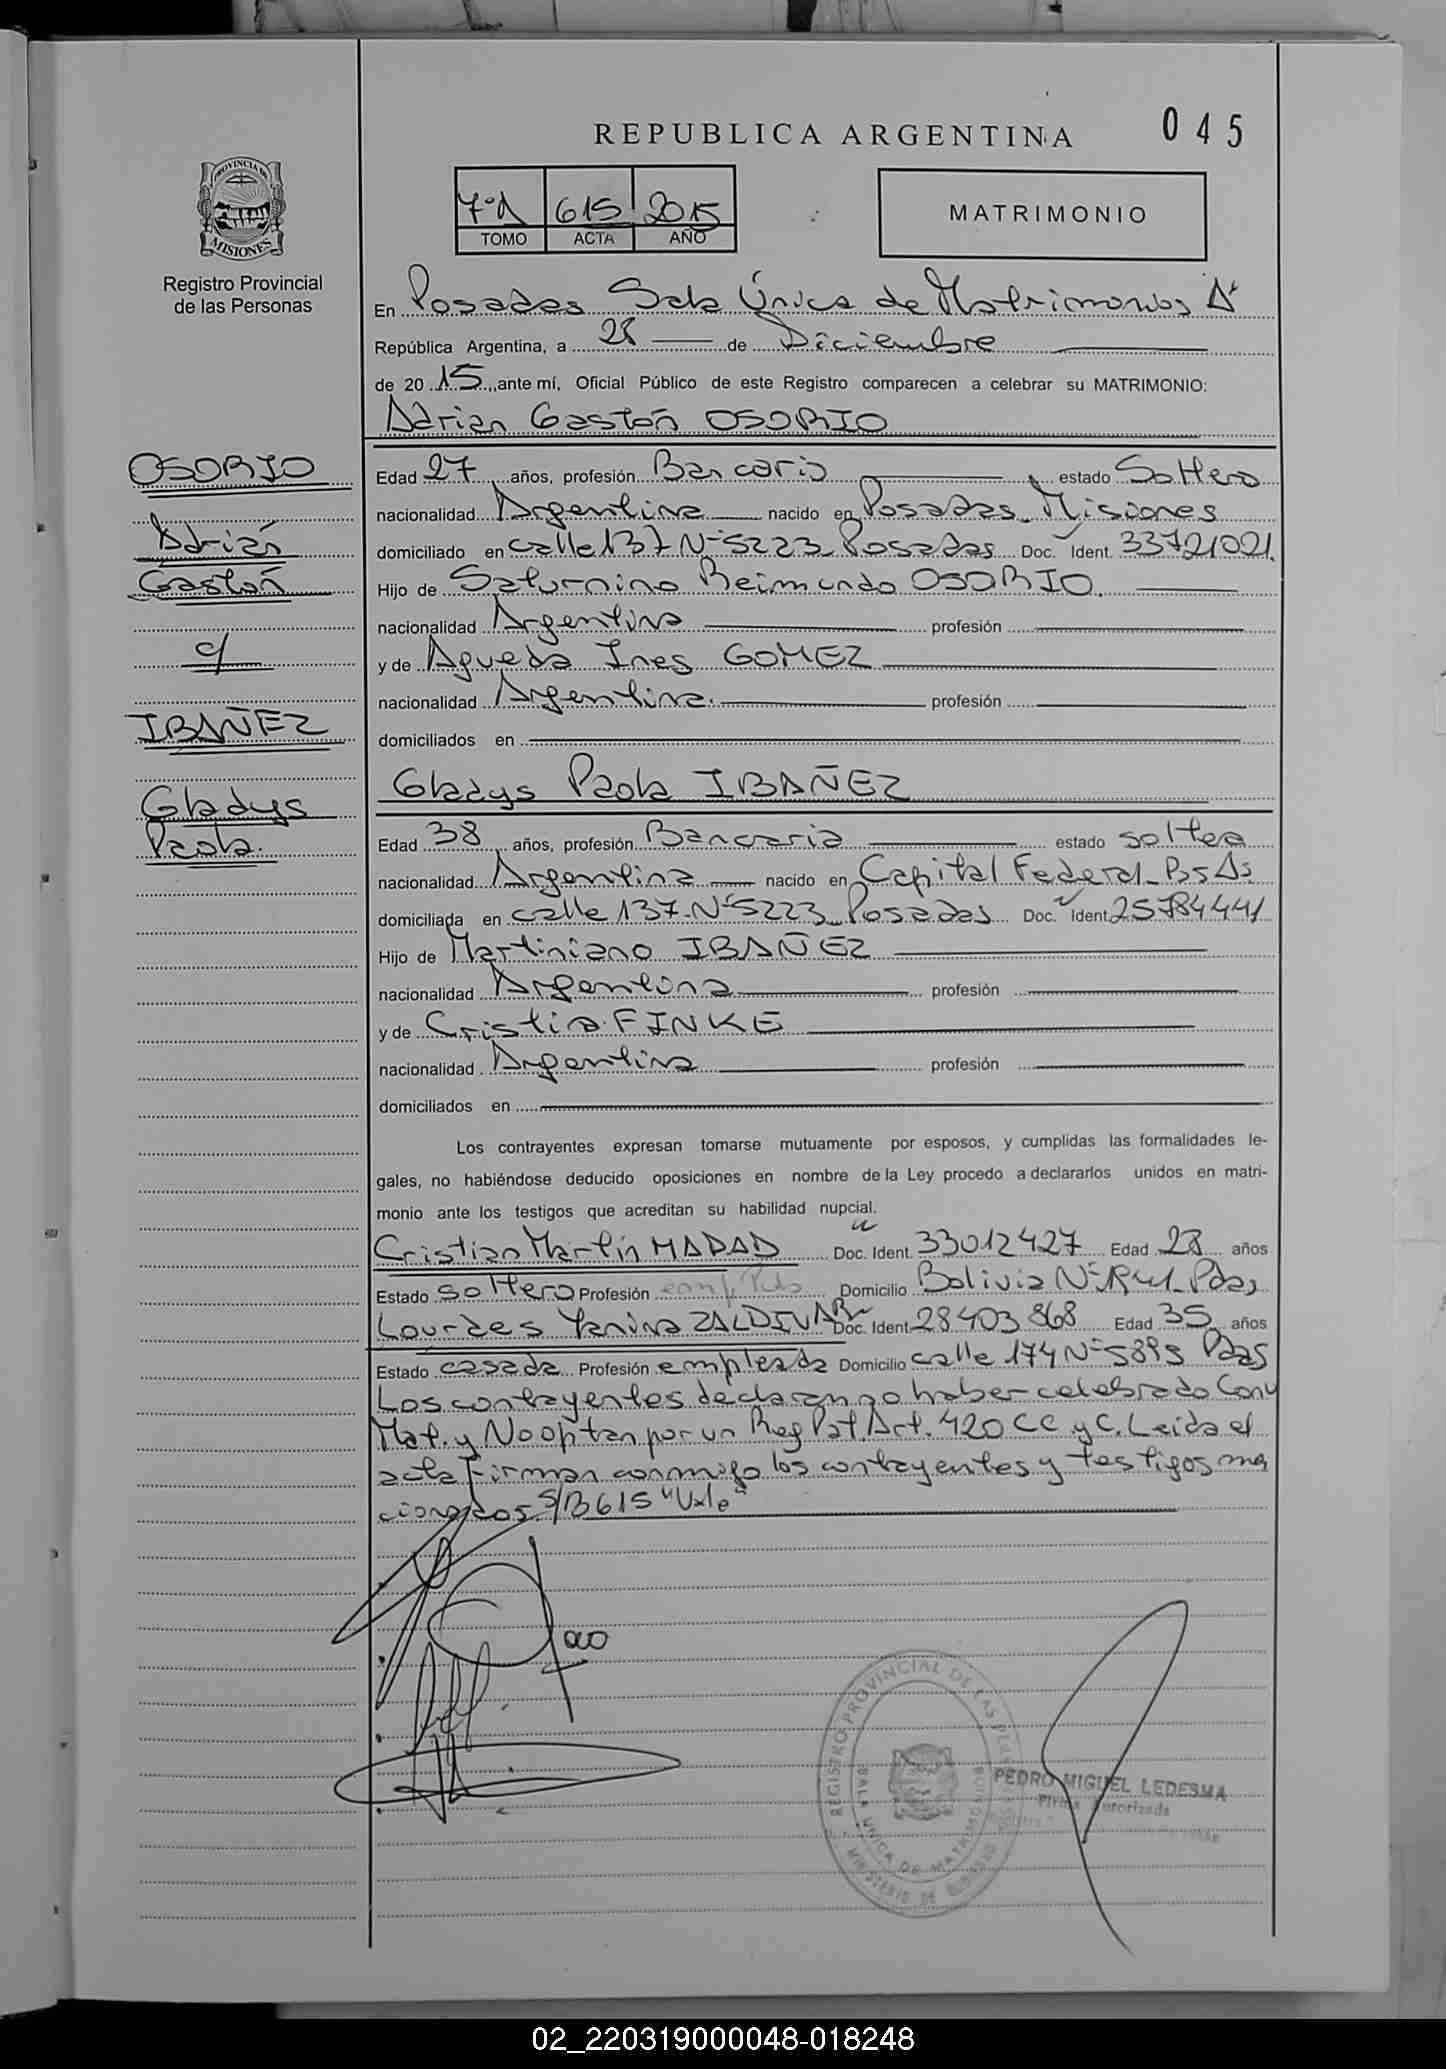 045
REPUBLICA ARGENTINA
7ºA 615 2015
TOMO ACTA AÑO
MATRIMONIO
PROVINCIA DE
MISIONES
Registro Provincial
de las Personas
En Posadas Sala Única de Matrimonios "A"
República Argentina, a 28 de Diciembre
de 2015, ante mí, Oficial Público de este Registro comparecen a celebrar su MATRIMONIO:
Adrian Gastón OSORIO
OSORIO
Adrián
Gastón
c/
IBAÑEZ
Gladys
Paola.
Edad 27 años, profesión Bancario estado Soltero
nacionalidad Argentina nacido en Posadas Misiones
domiciliado en calle 137 Nº 5223 Posadas Doc. Ident. 33721021.
Hijo de Saturnino Reimundo OSORIO.
nacionalidad Argentina profesión
y de Agueda Ines GOMEZ
nacionalidad Argentina. profesión
domiciliados en
Gladys Paola IBAÑEZ
Edad 38 años, profesión Bancaria estado soltera
nacionalidad Argentina nacido en Capital Federal_Bs As.
domiciliada en calle 137 Nº 5223 Posadas Doc. Ident. 25784441
Hijo de Martiniano IBAÑEZ
nacionalidad Argentina profesión
y de Cristina FINKE
nacionalidad Argentina profesión
domiciliados en
Los contrayentes expresan tomarse mutuamente por esposos, y cumplidas las formalidades le-
gales, no habiéndose deducido oposiciones en nombre de la Ley procedo a declararlos unidos en matri-
monio ante los testigos que acreditan su habilidad nupcial.
Cristian Martín HADAD Doc. Ident. 33012427 Edad 28 años
Estado soltero Profesión Domicilio Bolivia Nº Pdas,
Lourdes Yanina ZALDIVAR Doc. Ident. 28403868 Edad 35 años
Estado casada Profesión empleada Domicilio calle 174 Nº 5895 Pdas
Los contrayentes declaran no haber celebrado Conv
Mat. y No optan por un Reg Pat. Art. 420 CC y C. Leida el
acta Firman conmigo los contrayentes y testigos men
cionados S/B 615 "Vale"
REGISTRO PROVINCIAL DE LAS PERSONAS
SALA UNICA DE MATRIMONIO
MINISTERIO DE
PEDRO MIGUEL LEDESMA
Firma Autorizada
02_220319000048-018248